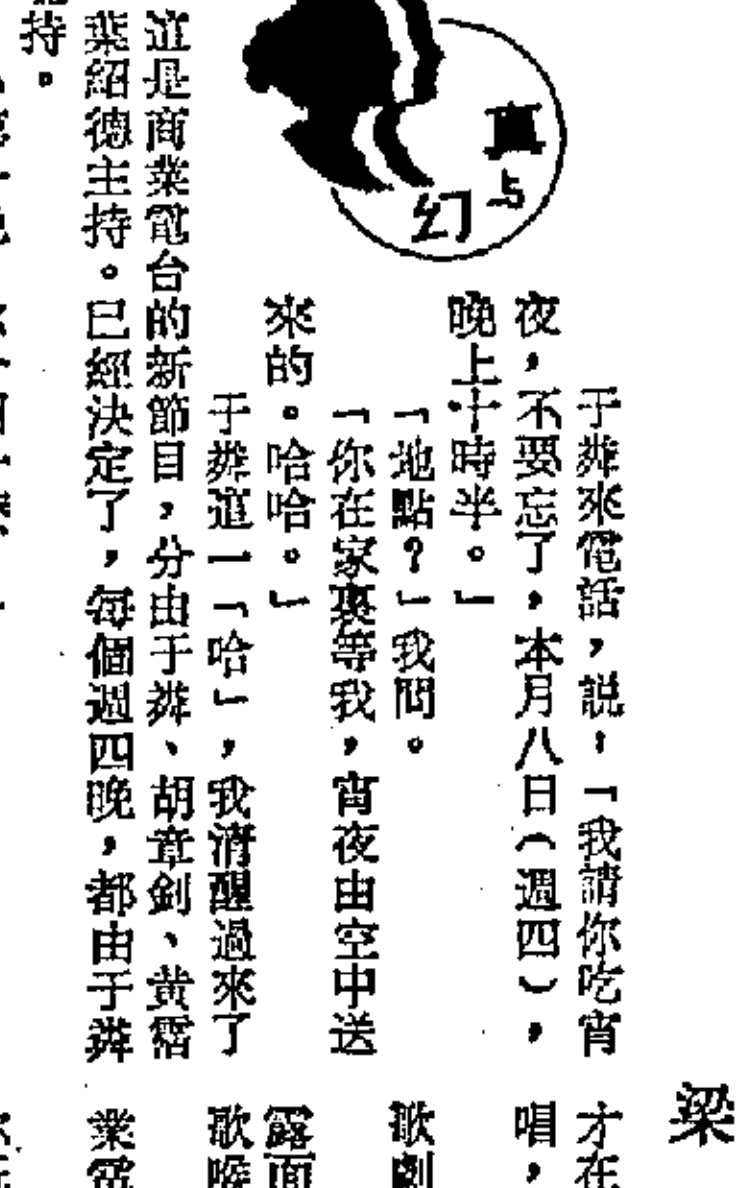 真与幻
于粦來電話，說：「我請你吃宵
夜，不要忘了，本月八日（週四），
晚上十時半。」
「地點？」我問。
「你在家裏等我，宵夜由空中送
來的。哈哈。」
于粦這一「哈」，我清醒過來了
這是商業電台的新節目，分由于粦、胡章釗、黃霑
葉紹德主持。已經決定了，每個週四晚，都由于粦
持。
梁
才在
唱，
歌劇
露面
歌喉
業電